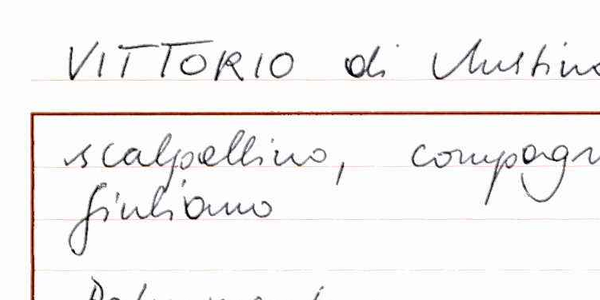 VITTORIO di
scalpellino, compagn
Giuliano